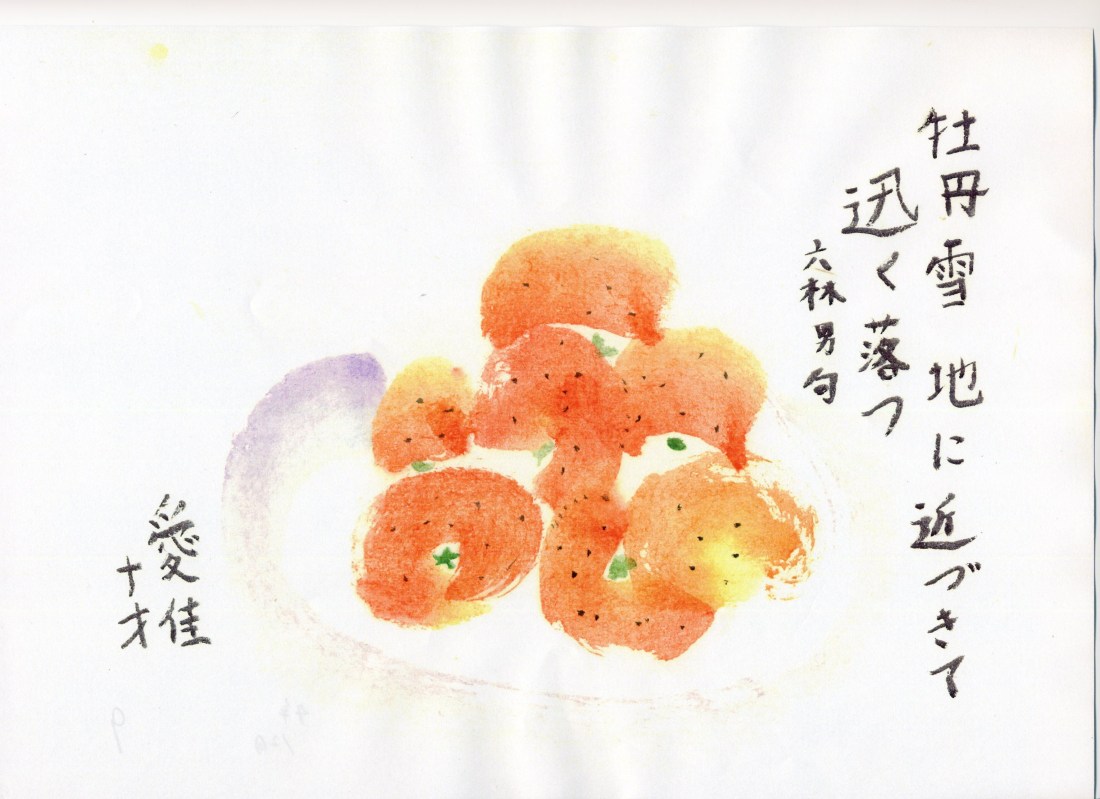 牡丹雪 地に近づきて
迅く落つ
六林男句
愛佳
十才